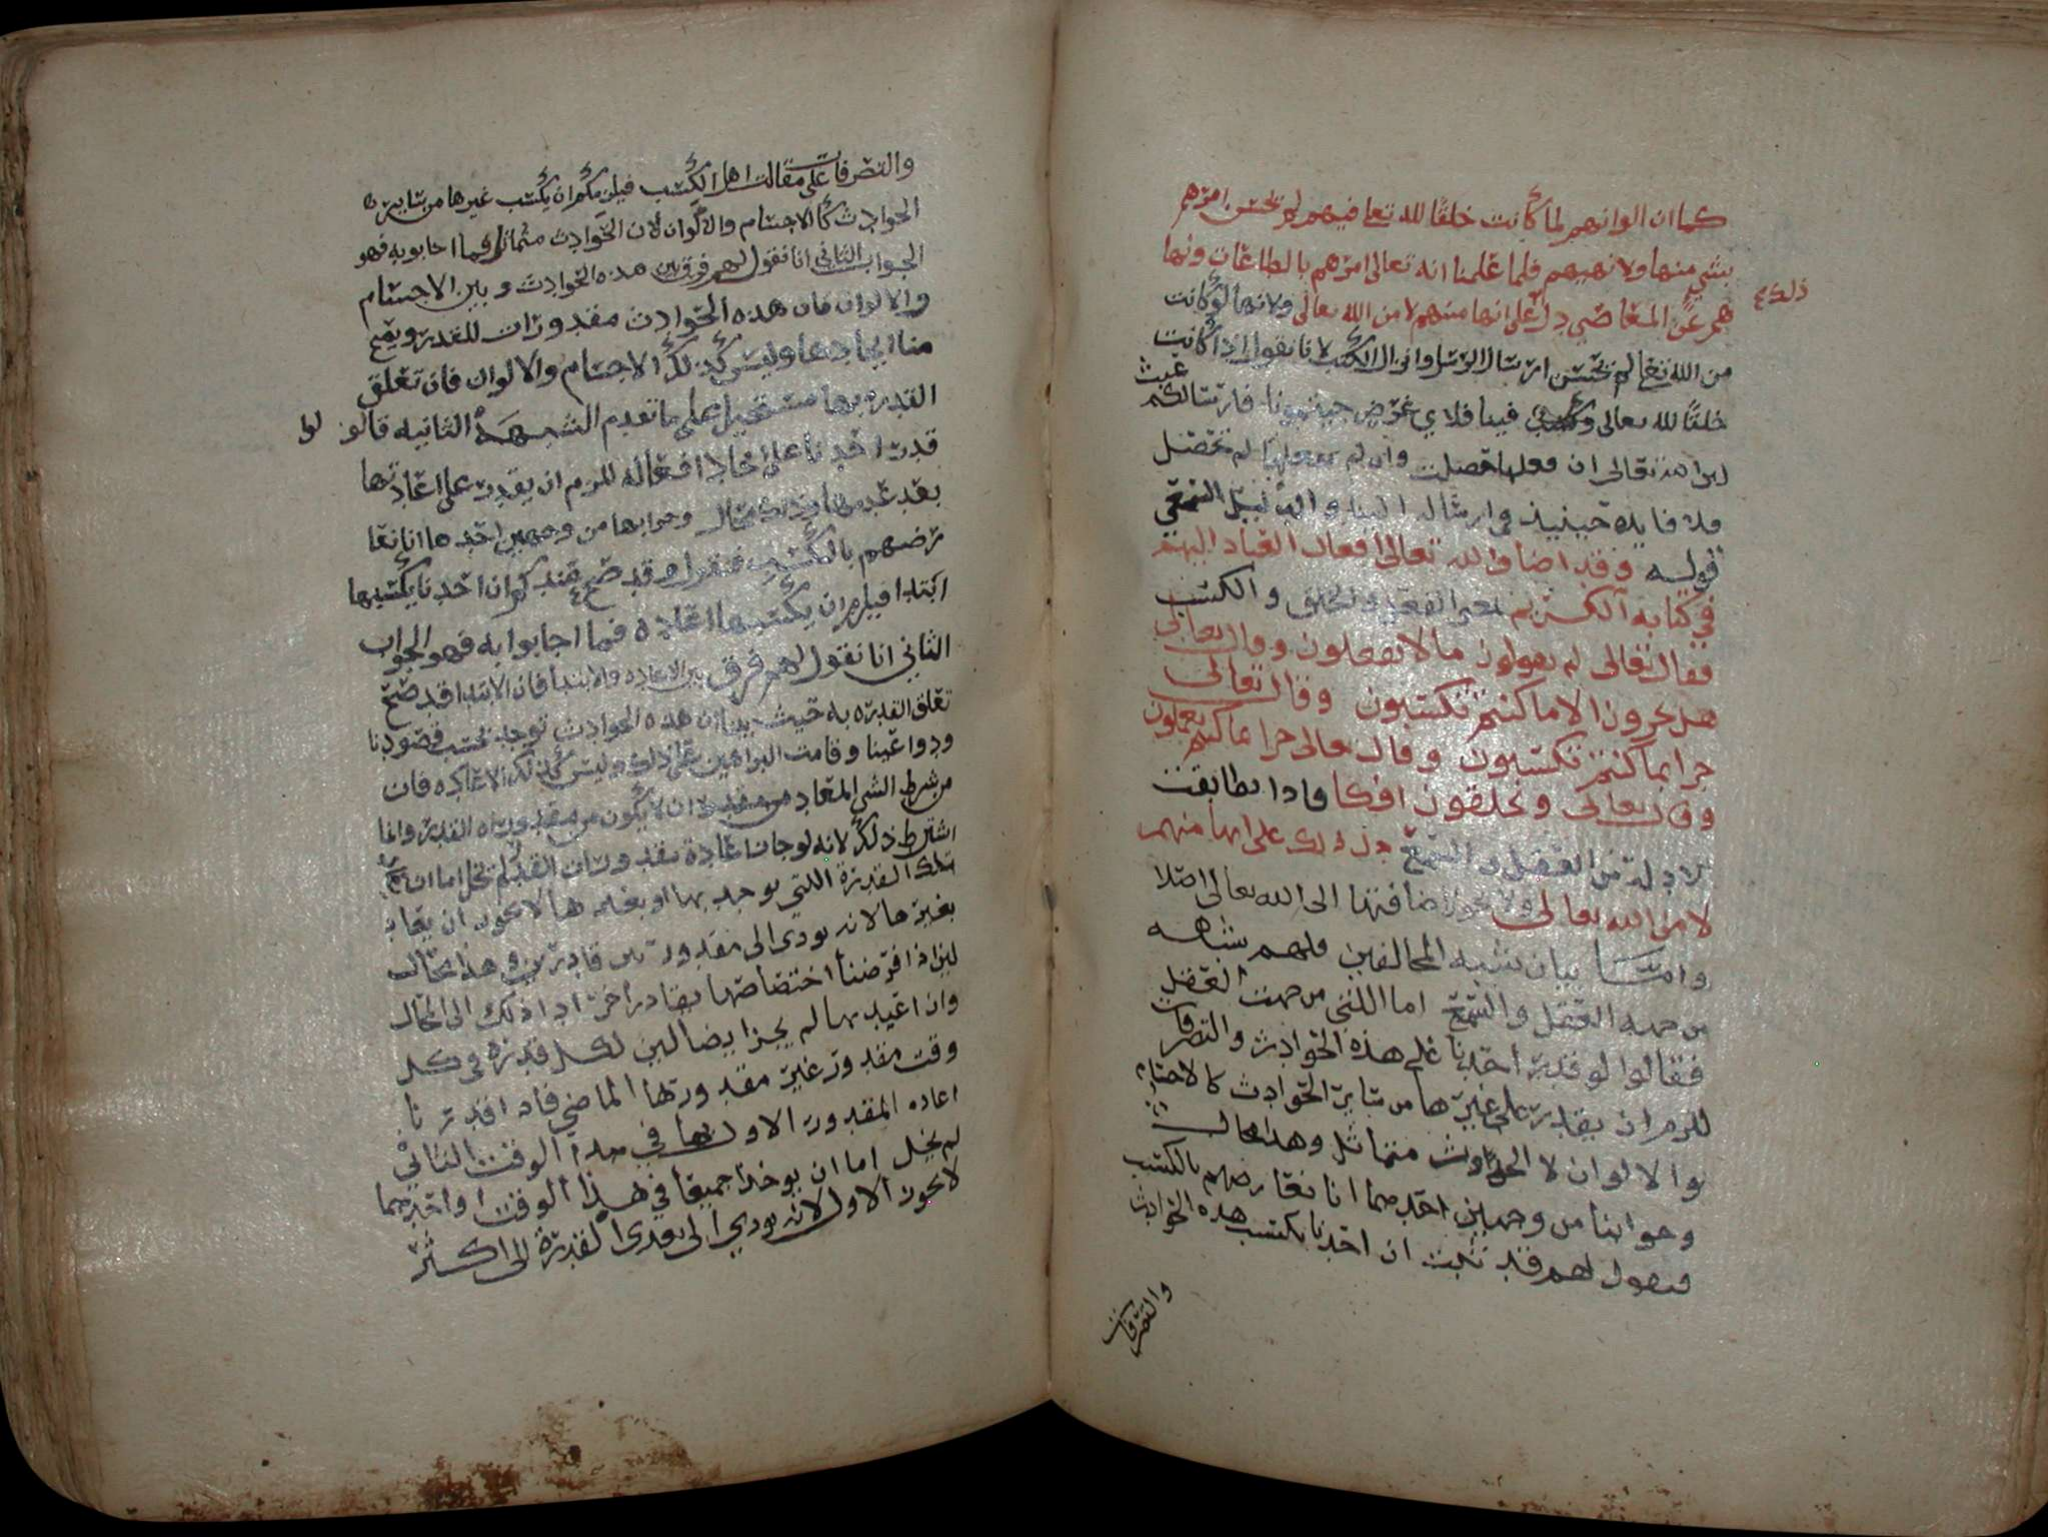 كما ان الوانهم لما كانت خلقا لله تعا فيهم لم يحسن امرهم
بشي منها ولا نهيهم فلما علمنا انه تعالى امرهم بالطاعات ونها
هم عن المعاصي دل على انها منهم لا من الله تعالى ولانها لو كانت
ذلك
من الله تعا لم يحسن ارسال الرسل وانزال الكتب لانا نقول اذا كانت
خلقا لله تعالى فينا فلاي غرض جيتمونا فارسالكم عبث
لان الله تعالى ان فعلها حصلت وان لم يفعلها لم تحصل
فلا فايده حينيذ في ارسال الينا والدليل السمعي
قوله وقد اضاف الله تعالى افعال العباد اليهم
في كتابه الكريم بمعنى الفعل والخلق والكسب
فقال تعالى لم تقولون ما لا تفعلون وقال تعالى
هل تجزون الا ما كنتم تكسبون وقال تعالى
جزا بما كنتم تكسبون وقال تعالى جزا بما كنتم تعملون
وقال تعالى وتخلقون افكا فاذا تطابقت
الادلة من العقل والسمع دل ذلك على انها منهم
لا من الله تعالى ولا يجوز اضافتها الى الله تعالى اصلا
واما بيان شبه المخالفين فلهم شبه
من جهه العقل والسمع اما اللتي من جهت العقل
فقالوا لو قدر احدنا على هذه الحوادث والتصرفات
للزم ان يقدر على غيرها من ساير الحوادث كالاجسام
والالوان لان الحوادث متماثله وهذا محال
وجوابنا من وجهين احدهما انا نعارضهم بالكسب
فنقول لهم قد ثبت ان احدنا يكتسب هذه الحوادث
والتصرفات
والتصرفات على مقالت اهل الكسب فيلزمكم ان يكتسب غيرها من ساير
الحوادث كالاجسام والالوان لان الحوادث متماثله فما اجابوا به فهو
الجواب الثاني انا نقول لهم فرق بين هذه الحوادث وبين الاجسام
والالوان فان هذه الحوادث مقدورات للقدر ويصح
منا ايجادها وليس كذلك الاجسام والالوان فان تعلق
القدره بها مستحيل على ما تقدم الشبهة الثانيه قالوا لو
قدر احدنا على ايجاد افعاله للزم ان يقدر على اعادتها
بعد عدمها وذلك محال وجوابها من وجهين احدهما انا نعا
رضهم بالكسب فنقول قد صح عندكم ان احدنا يكتسبها
ابتدا فيلزم ان يكتسبها اعاده فما اجابوا به فهو الجواب
الثاني انا نقول لهم فرق بين الاعاده والابتدا فان الابتدا قد صح
تعلق القدره به حيث بينا ان هذه الحوادث توجد بحسب قصودنا
ودواعينا وقامت البراهين على ذلك وليس كذلك الاعاده فان
من شرط الشي المعاد ان لا يكون من مقدورات القدر وانما
اشترط ذلك لانه لو جاز اعادة مقدورات القدر لم تخل اما ان
تلك القدرة اللتي يوجد بها او بغيرها لا يجوز ان يعاد
بغيرها لانه يودي الى مقدور بين قادرين وهذا محال
لين اذا فرضنا اختصاصها بقادر اخر ادا ذلك الى المحال
وان اعيد بها لم يجز ايضا لين لكل قدرة في كل
وقت مقدور غير مقدورها الماضي فاذا قدرنا
اعاده المقدور الاول بها في هذا الوقت الثاني
لم يخل اما ان يوجدا جميعا في هذا الوقت او احدهما
لا يجوز الاول لانه يودي الى تعدي القدرة الى اكثر